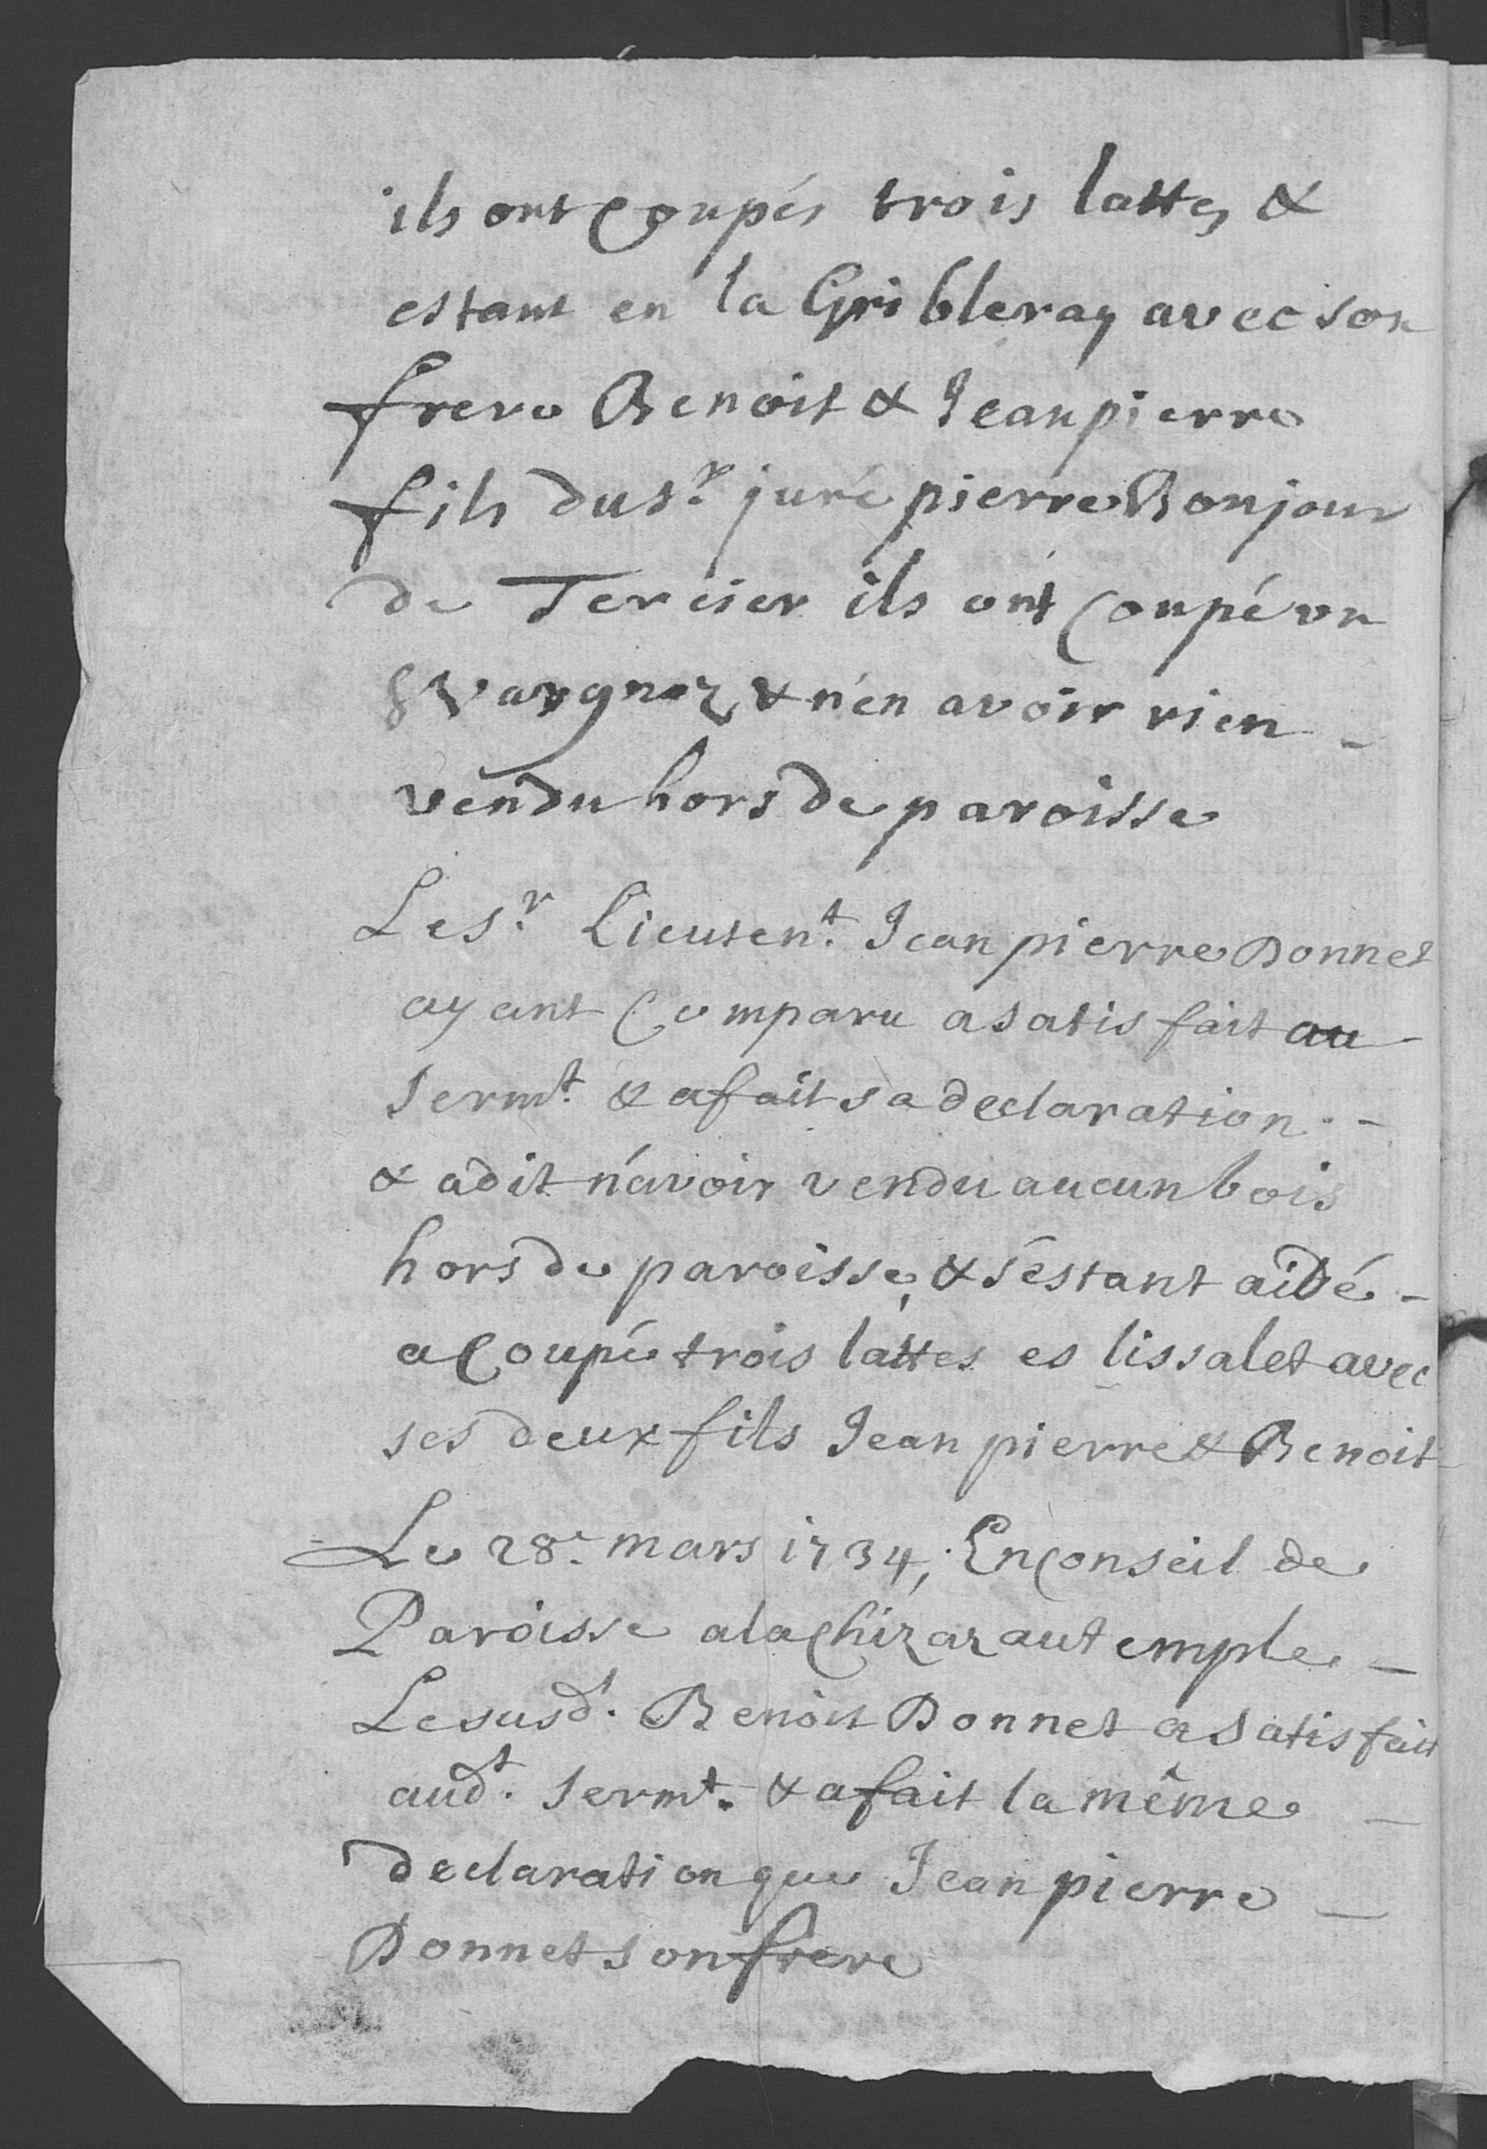 ils ont Coupés trois lattes &
estant en la Gribleray avec son
frere Benoit & Jean pierre
fils du Sr. juré pierre Bonjour
de Tercier ils ont Coupé vn
Vuargnoz & n'en avoir rien -
vendu hors de paroisse
Le Sr. Lieutent. Jean pierre Donnet
ayant Comparu a satisfait au
Sermt. & a fait sa declaration . -
& a dit n'avoir vendu aucun bois
hors de paroisse, & s'éstant aidé -
a Coupé trois lattes es lissalet avec
ses deux fils Jean pierre & Benoit
Le 28e. mars 1734, En Conseil de
Paroisse a la Chizaz au temple -
Le susdt. Benoit Donnet a Satisfait
audt. Sermt. & a fait la même -
declaration que Jean pierre -
Donnet son frere